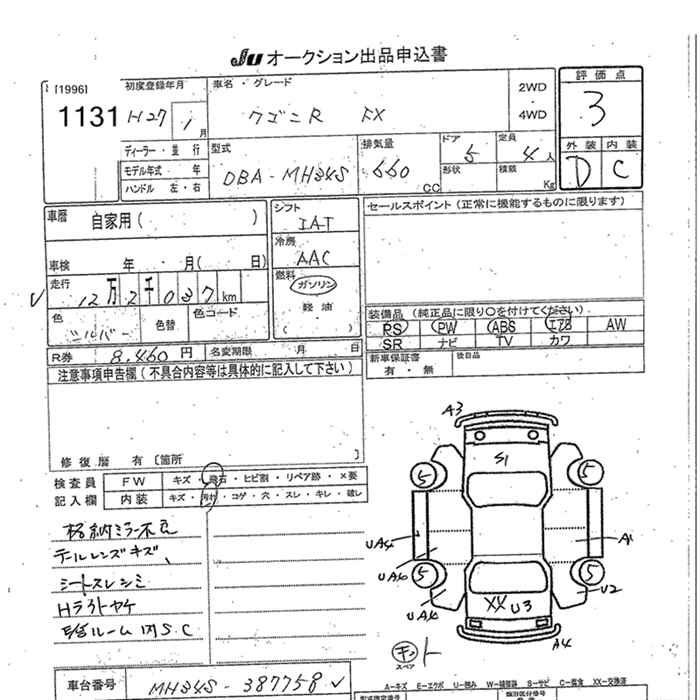 JU オークション出品申込書
[1996] 初度登録年月 車名・グレード 2WD ・ 4WD 評価点
1131 H27 1月 ワゴンR FX 3
ディーラー・並 行 型式 排気量 ドア 5 定員 4人 外装 内装
モデル年式 年 DBA-MH34S 660 CC 形状 積載 Kg D C
ハンドル 左・右
車歴 自家用( ) シフト IAT セールスポイント(正常に機能するものに限ります)
冷房 AAC
車検 年 月( 日) 燃料 ガソリン
走行 12万2千037km 軽油
( )
色 シルバー 色替 色コード 装備品(純正品に限り○を付けてください)
PS PW ABS エアB AW
SR ナビ TV カワ
R券 8,460円 名変期限 月 日 新車保証書 有・無 後日品
注意事項申告欄(不具合内容等は具体的に記入して下さい)
修復歴 有 [箇所 ]
検査員 FW キズ・飛石・ヒビ割・リペア跡・×要
記入欄 内装 キズ・汚れ・コゲ・穴・スレ・キレ・破レ
格納ミラー不良
テールレンズキズ、
シートスレシミ
Hライトヤケ
A3
S1
5 5
UA4 A1
UA6
5 5
UA6 XX U3 U2
A4
キット
スペア
車台番号 MH34S-387758
A-キズ E-エクボ U-凹み W-補修跡 S-サビ C-腐食 XX-交換済